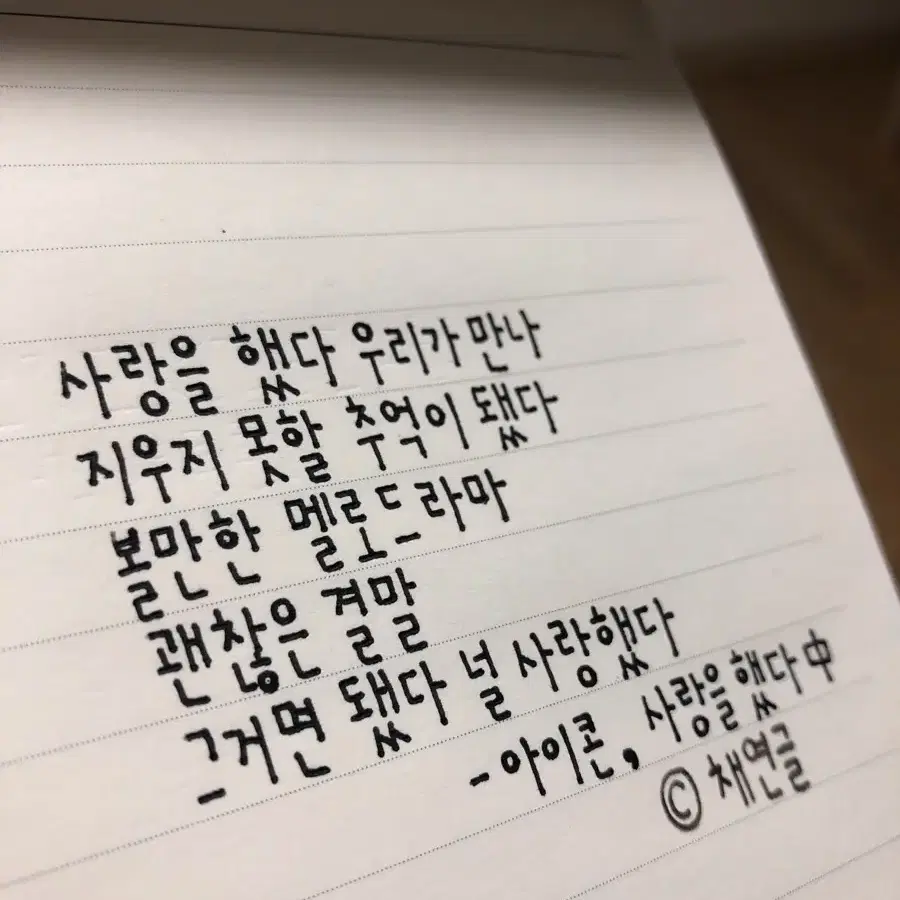 사랑을 했다 우리가 만나
지우지 못할 추억이 됐다
볼만한 멜로드라마
괜찮은 결말
그거면 됐다 널 사랑했다
-아이콘, 사랑을 했다 中
© 채연글